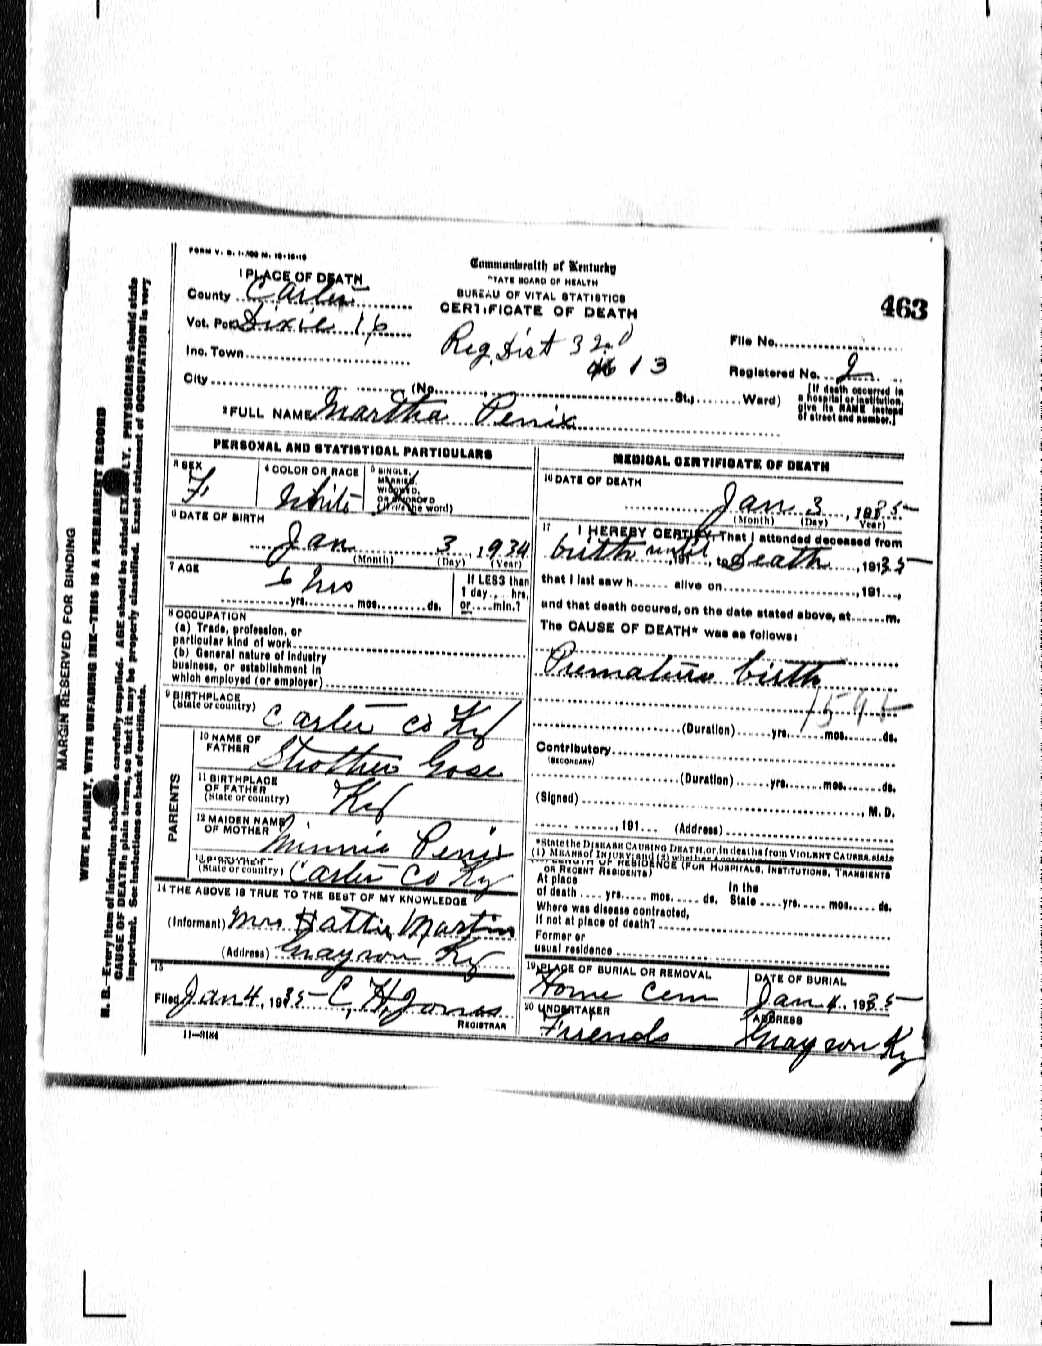 FORM V. S. 1-
Commonwealth of Kentucky
STATE BOARD OF HEALTH
BUREAU OF VITAL STATISTICS
CERTIFICATE OF DEATH
463
1 PLACE OF DEATH
County Carter
Vot. Pct. Dixie 16
Inc. Town
City (No. St., Ward)
Reg. Dist 32
13
File No.
Registered No. 2
[If death occurred in
a hospital or institution,
give its NAME instead
of street and number.]
2 FULL NAME Martha Penix
PERSONAL AND STATISTICAL PARTICULARS
3 SEX
F
4 COLOR OR RACE
White
5 SINGLE,
MARRIED,
WIDOWED,
OR DIVORCED
(Write the word)
6 DATE OF BIRTH
Jan 3, 1934
(Month) (Day) (Year)
7 AGE
6 hrs
yrs. mos. ds.
If LESS than
1 day hrs.
or min.?
8 OCCUPATION
(a) Trade, profession, or
particular kind of work
(b) General nature of industry
business, or establishment in
which employed (or employer)
9 BIRTHPLACE
(State or country) Carter Co Ky
PARENTS
10 NAME OF
FATHER Strother Gose
11 BIRTHPLACE
OF FATHER
(State or country) Ky
12 MAIDEN NAME
OF MOTHER Minnie Penix
(State or country) Carter Co Ky
14 THE ABOVE IS TRUE TO THE BEST OF MY KNOWLEDGE
(Informant) Mrs Hattie Martin
(Address) Grayson Ky
15
Filed Jan 4, 1935 C. H. Jones
REGISTRAR
11—3184
MEDICAL CERTIFICATE OF DEATH
16 DATE OF DEATH
Jan 3, 1935
(Month) (Day) Year)
17 I HEREBY CERTIFY, That I attended deceased from
birth until, 191 , to Death, 1935
that I last saw h alive on , 191 ,
and that death occured, on the date stated above, at m.
The CAUSE OF DEATH* was as follows:
Premature birth
1595
(Duration) yrs. mos. ds.
Contributory
(SECONDARY)
(Duration) yrs. mos. ds.
(Signed) , M. D.
, 191 (Address)
*State the DISEASE CAUSING DEATH, or, in deaths from VIOLENT CAUSES, state
(1) MEANS OF INJURY; and (2) whether
LENGTH OF RESIDENCE (FOR HOSPITALS, INSTITUTIONS, TRANSIENTS
OR RECENT RESIDENTS)
At place In the
of death yrs. mos. ds. State yrs. mos. ds.
Where was disease contracted,
if not at place of death?
Former or
usual residence
19 PLACE OF BURIAL OR REMOVAL
Home Cem
DATE OF BURIAL
Jan 4, 1935
20 UNDERTAKER
Friends
ADDRESS
Grayson Ky
MARGIN RESERVED FOR BINDING
WRITE PLAINLY, WITH UNFADING INK—THIS IS A PERMANENT RECORD
N. B.—Every item of information should be carefully supplied. AGE should be stated EXACTLY. PHYSICIANS should state
CAUSE OF DEATH in plain terms, so that it may be properly classified. Exact statement of OCCUPATION is very
important. See instructions on back of certificate.